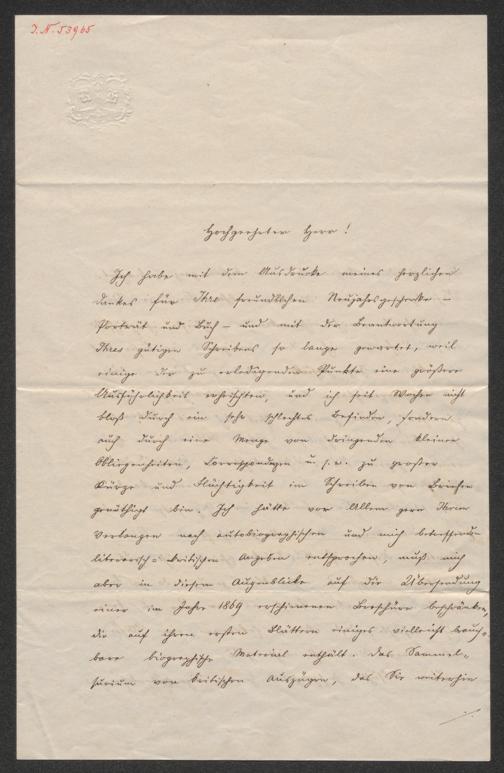 I. N. 53965
Hochgeehrter Herr!
Ich habe mit dem Ausdrucke meines herzlichen
Dankes für Ihre freundlichen Neujahrsgeschenke –
Porträt und Buch – und mit der Beantwortung
Ihres gütigen Schreibens so lange gewartet, weil
einige der zu erledigenden Punkte eine größere
Ausführlichkeit erheischten, und ich seit Wochen nicht
bloß durch ein sehr schlechtes Befinden, sondern
auch durch eine Menge von dringenden kleinen
Obliegenheiten, Correspondenzen u. s. w. zu großer
Kürze und Flüchtigkeit im Schreiben von Briefen
genöthigt bin. Ich hätte vor Allem gern Ihrem
Verlangen nach autobiographischen und mich betreffenden
literarisch-kritischen Angaben entsprochen, muß mich
aber in diesem Augenblicke auf die Übersendung
einer im Jahre 1869 erschienenen Broschüre beschränken,
die auf ihren ersten Blättern einiges vielleicht brauch-
bare biographische Material enthält. Das Sammel-
surium von kritischen Auszügen, das Sie weiterhin